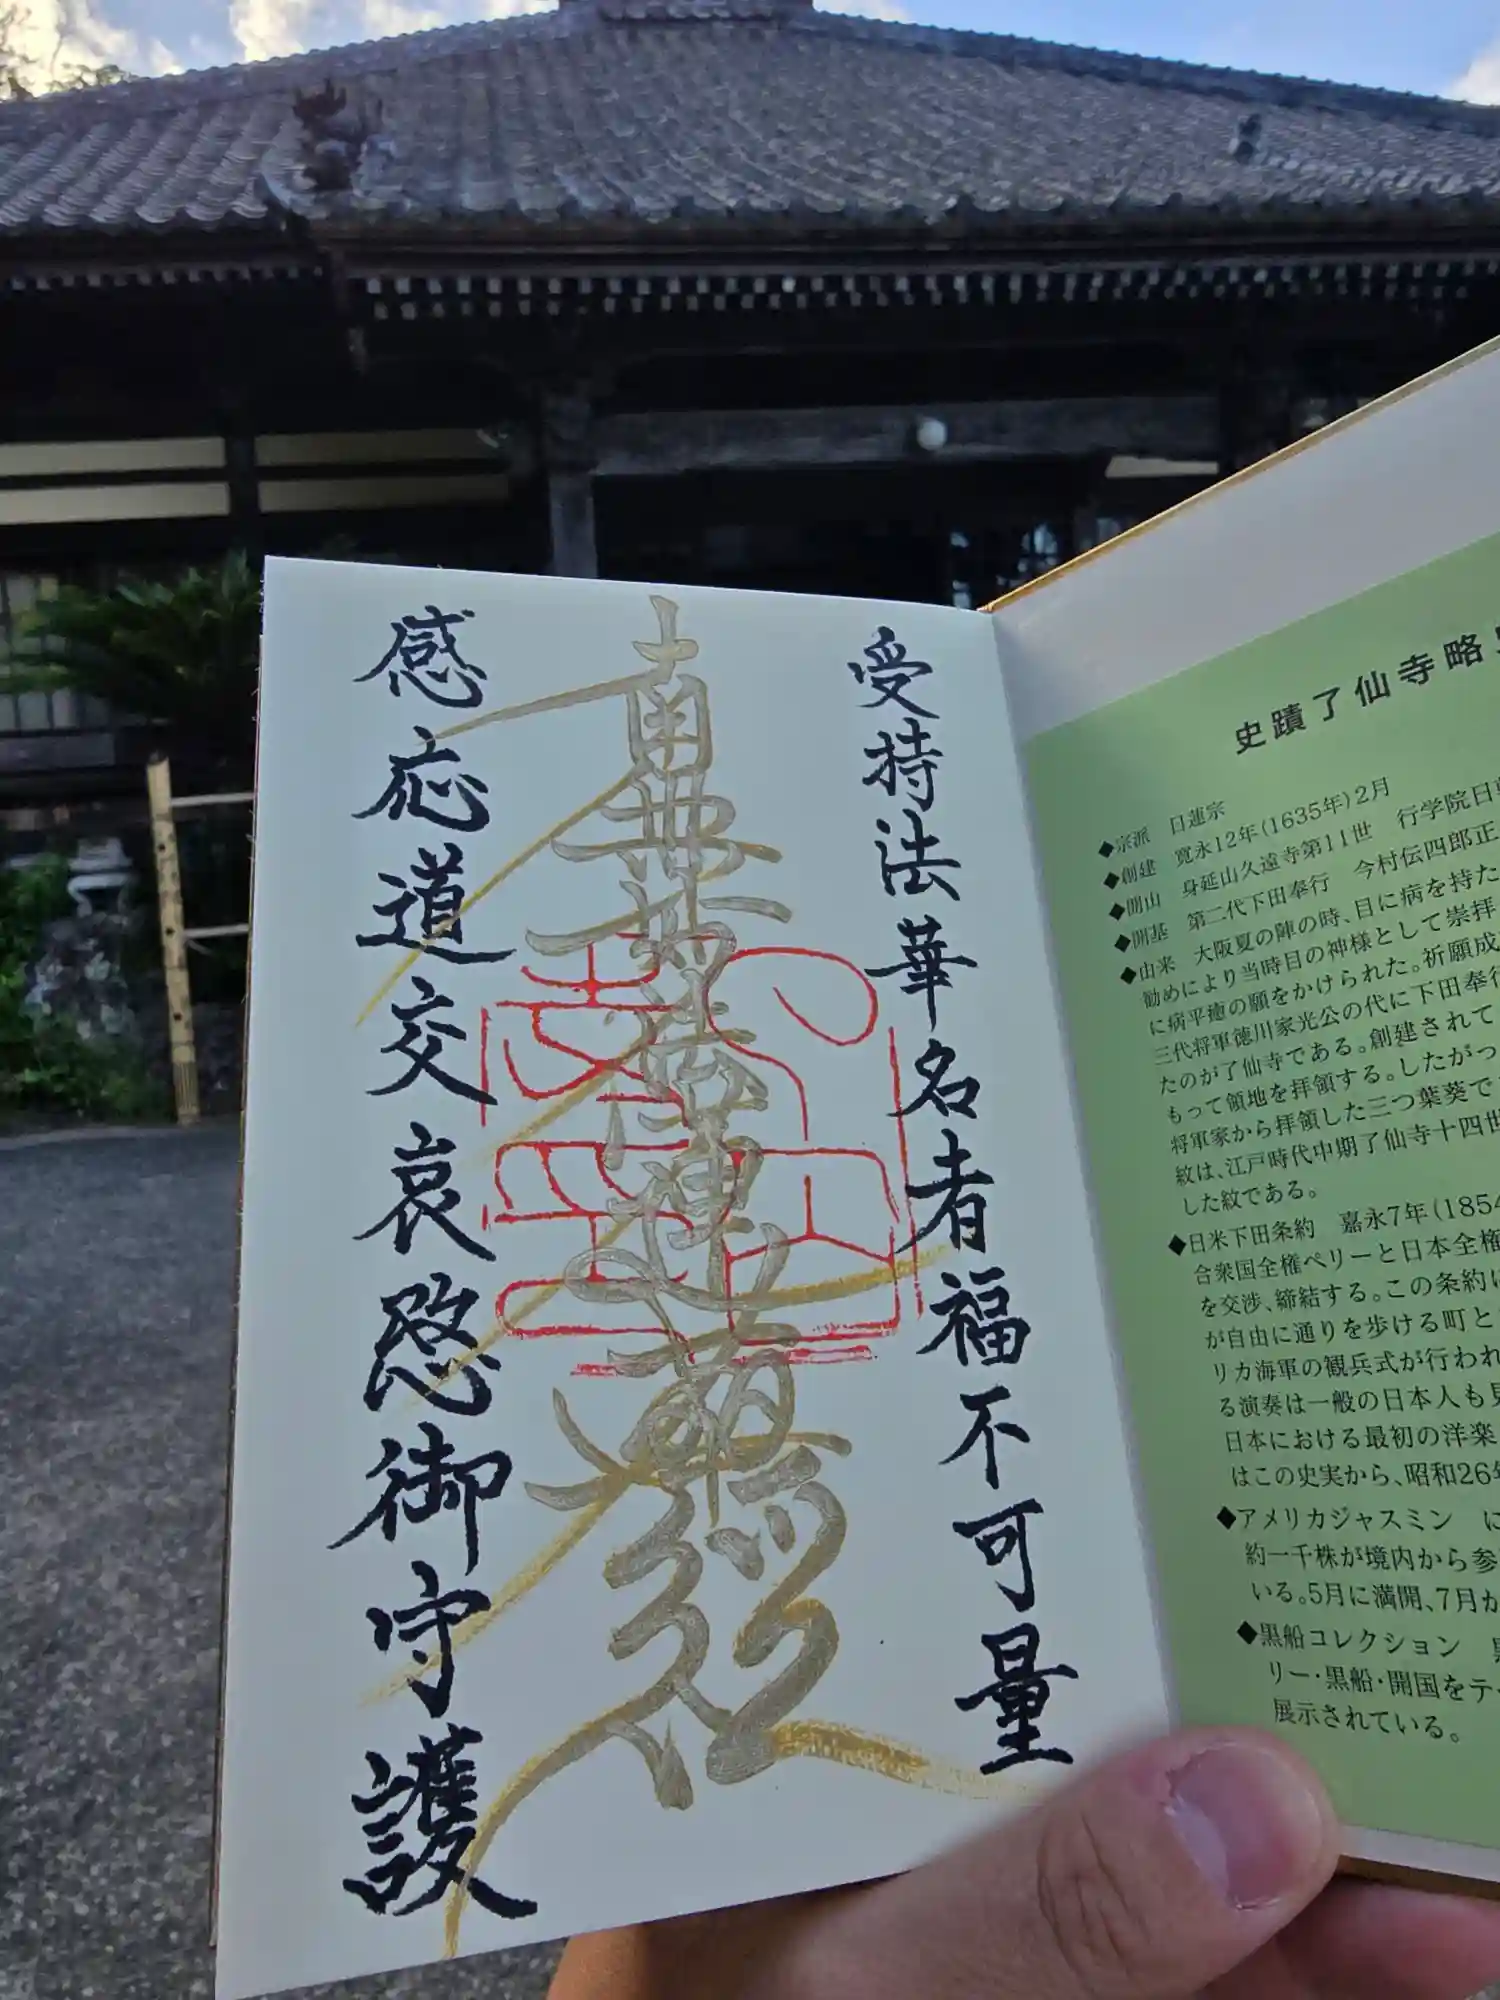 受持法華名者福不可量
南無妙法蓮華経
感応道交哀愍御守護
史蹟了仙寺略
◆宗派　日蓮宗
◆創建　寛永12年(1635年)2月
◆開山　身延山久遠寺第11世　行学院日
◆開基　第二代下田奉行　今村伝四郎正
◆由来　大阪夏の陣の時、目に病を持た
勧めにより当時目の神様として崇拝
に病平癒の願をかけられた。祈願成
三代将軍徳川家光公の代に下田奉行
たのが了仙寺である。創建されて
もって領地を拝領する。したがっ
将軍家から拝領した三つ葉葵で
紋は、江戸時代中期了仙寺十四世
した紋である。
◆日米下田条約　嘉永7年(1854
合衆国全権ペリーと日本全権
を交渉、締結する。この条約に
が自由に通りを歩ける町と
リカ海軍の観兵式が行われ
る演奏は一般の日本人も見
日本における最初の洋楽
はこの史実から、昭和26年
◆アメリカジャスミン　に
約一千株が境内から参
いる。5月に満開、7月か
◆黒船コレクション　黒
リー・黒船・開国をテ
展示されている。